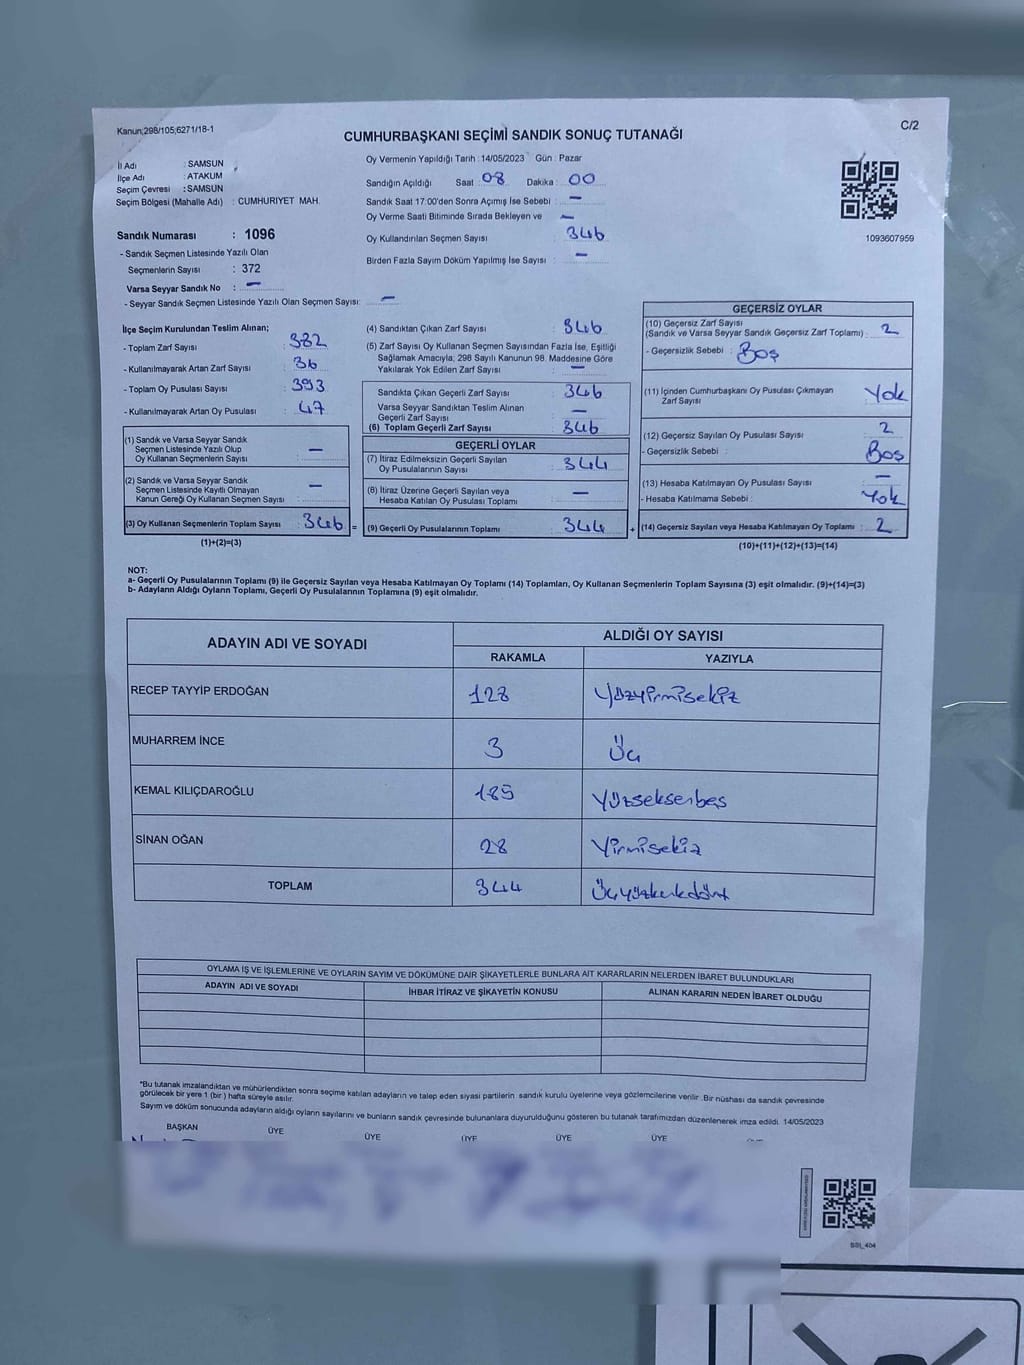 Kanun;298/105;6271/18-1
C/2
CUMHURBAŞKANI SEÇİMİ SANDIK SONUÇ TUTANAĞI
İl Adı : SAMSUN
İlçe Adı : ATAKUM
Seçim Çevresi : SAMSUN
Seçim Bölgesi (Mahalle Adı) : CUMHURIYET MAH.
Sandık Numarası : 1096
- Sandık Seçmen Listesinde Yazılı Olan
Seçmenlerin Sayısı : 372
Varsa Seyyar Sandık No : –
- Seyyar Sandık Seçmen Listesinde Yazılı Olan Seçmen Sayısı: –
Oy Vermenin Yapıldığı Tarih : 14/05/2023 Gün : Pazar
Sandığın Açıldığı Saat 08 Dakika : 00
Sandık Saat 17:00'den Sonra Açımış İse Sebebi : –
Oy Verme Saati Bitiminde Sırada Bekleyen ve –
Oy Kullandırılan Seçmen Sayısı 346
Birden Fazla Sayım Döküm Yapılmış İse Sayısı : –
1093607959
İlçe Seçim Kurulundan Teslim Alınan;
- Toplam Zarf Sayısı : 382
- Kullanılmayarak Artan Zarf Sayısı : 36
- Toplam Oy Pusulası Sayısı : 393
- Kullanılmayarak Artan Oy Pusulası : 47
(1) Sandık ve Varsa Seyyar Sandık
Seçmen Listesinde Yazılı Olup
Oy Kullanan Seçmenlerin Sayısı : –
(2) Sandık ve Varsa Seyyar Sandık
Seçmen Listesinde Kayıtlı Olmayan
Kanun Gereği Oy Kullanan Seçmen Sayısı : –
(3) Oy Kullanan Seçmenlerin Toplam Sayısı : 346 =
(1)+(2)=(3)
(4) Sandıktan Çıkan Zarf Sayısı : 346
(5) Zarf Sayısı Oy Kullanan Seçmen Sayısından Fazla İse, Eşitliği
Sağlamak Amacıyla; 298 Sayılı Kanunun 98. Maddesine Göre
Yakılarak Yok Edilen Zarf Sayısı : –
Sandıkta Çıkan Geçerli Zarf Sayısı : 346
Varsa Seyyar Sandıktan Teslim Alınan
Geçerli Zarf Sayısı : –
(6) Toplam Geçerli Zarf Sayısı : 346
GEÇERLİ OYLAR
(7) İtiraz Edilmeksizin Geçerli Sayılan
Oy Pusulalarının Sayısı : 344
(8) İtiraz Üzerine Geçerli Sayılan veya
Hesaba Katılan Oy Pusulası Toplamı : –
(9) Geçerli Oy Pusulalarının Toplamı : 344 +
GEÇERSİZ OYLAR
(10) Geçersiz Zarf Sayısı
(Sandık ve Varsa Seyyar Sandık Geçersiz Zarf Toplamı) : 2
- Geçersizlik Sebebi : Boş
(11) İçinden Cumhurbaşkanı Oy Pusulası Çıkmayan
Zarf Sayısı : Yok
(12) Geçersiz Sayılan Oy Pusulası Sayısı : 2
- Geçersizlik Sebebi : Boş
(13) Hesaba Katılmayan Oy Pusulası Sayısı : –
- Hesaba Katılmama Sebebi : Yok
(14) Geçersiz Sayılan veya Hesaba Katılmayan Oy Toplamı : 2
(10)+(11)+(12)+(13)=(14)
NOT:
a- Geçerli Oy Pusulalarının Toplamı (9) ile Geçersiz Sayılan veya Hesaba Katılmayan Oy Toplamı (14) Toplamları, Oy Kullanan Seçmenlerin Toplam Sayısına (3) eşit olmalıdır. (9)+(14)=(3)
b- Adayların Aldığı Oyların Toplamı, Geçerli Oy Pusulalarının Toplamına (9) eşit olmalıdır.
ADAYIN ADI VE SOYADI ALDIĞI OY SAYISI
RAKAMLA YAZIYLA
RECEP TAYYİP ERDOĞAN 128 Yüzyirmisekiz
MUHARREM İNCE 3 Üç
KEMAL KILIÇDAROĞLU 185 Yüzseksenbeş
SİNAN OĞAN 28 Yirmisekiz
TOPLAM 344 Üçyüzkırkdört
OYLAMA İŞ VE İŞLEMLERİNE VE OYLARIN SAYIM VE DÖKÜMÜNE DAİR ŞİKAYETLERLE BUNLARA AİT KARARLARIN NELERDEN İBARET BULUNDUKLARI
ADAYIN ADI VE SOYADI İHBAR İTİRAZ VE ŞİKAYETİN KONUSU ALINAN KARARIN NEDEN İBARET OLDUĞU
*Bu tutanak imzalandıktan ve mühürlendikten sonra seçime katılan adayların ve talep eden siyasi partilerin sandık kurulu üyelerine veya gözlemcilerine verilir .Bir nüshası da sandık çevresinde
görülecek bir yere 1 (bir ) hafta süreyle asılır.
Sayım ve döküm sonucunda adayların aldığı oyların sayılarını ve bunların sandık çevresinde bulunanlara duyurulduğunu gösteren bu tutanak tarafımızdan düzenlenerek imza edildi. 14/05/2023
BAŞKAN ÜYE ÜYE ÜYE ÜYE ÜYE
SSI_404